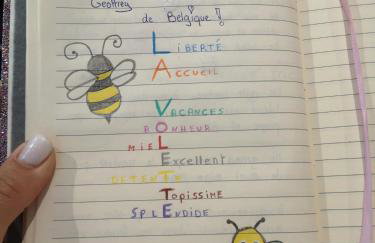 Geoffrey
de Belgique !
LIBERTÉ
ACCUEIL
VACANCES
BONHEUR
MIEL
Excellent
DETENTE
TOPISSIME
SPLENDIDE